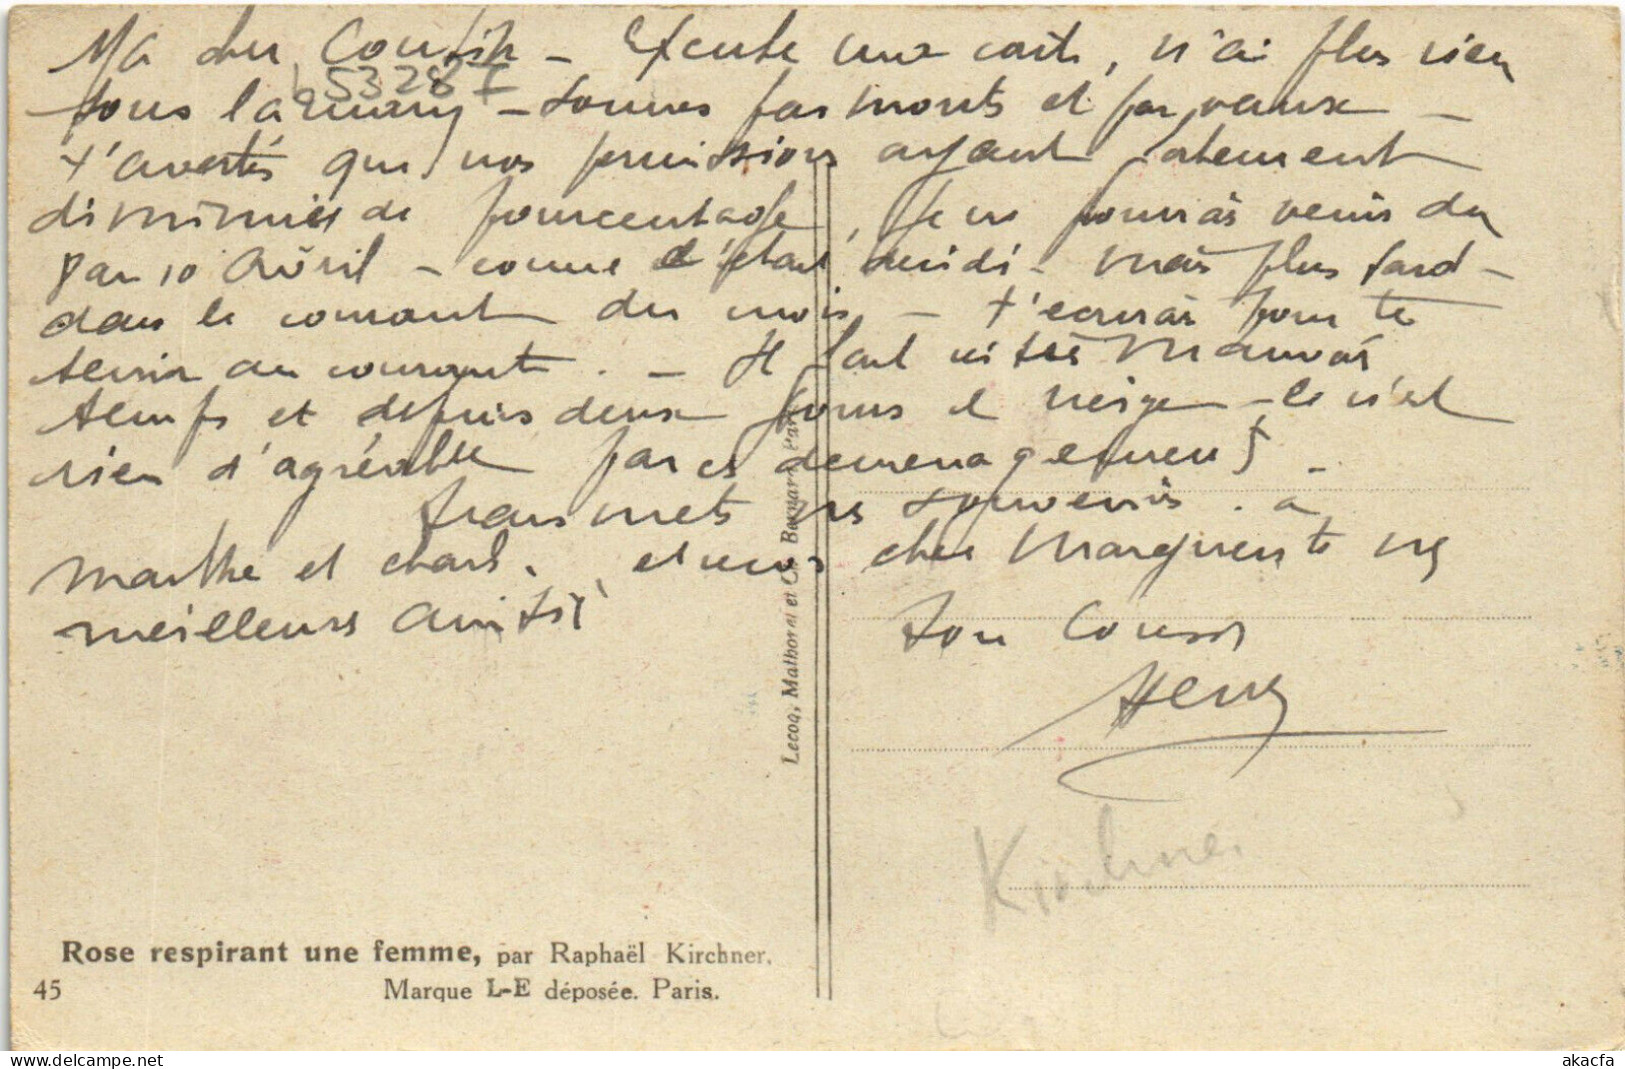 Ma chère Cousine – Excuse ma carte, n'ai plus rien
53287
sous la main – sommes par monts et par vaux –
t'avertis que nos permissions ayant
diminuées de pourcentage, je ne pourrais venir du
10 Avril – comme c'était – mais plus tard –
dans le courant du mois – t'écrirais pour te
tenir au courant. – Il fait ici très mauvais
temps et depuis deux jours il neige – ce n'est
rien d'agréable par ces déménagements –
transmets nos souvenirs à
Marthe et et chère Marguerite nos
meilleures amitiés
Ton Cousin
Henry
Kirchner
Lecoq, Mathorel et Ch. Bernard, Paris
Rose respirant une femme, par Raphaël Kirchner.
45 Marque L-E déposée. Paris.
www.delcampe.net
akacfa